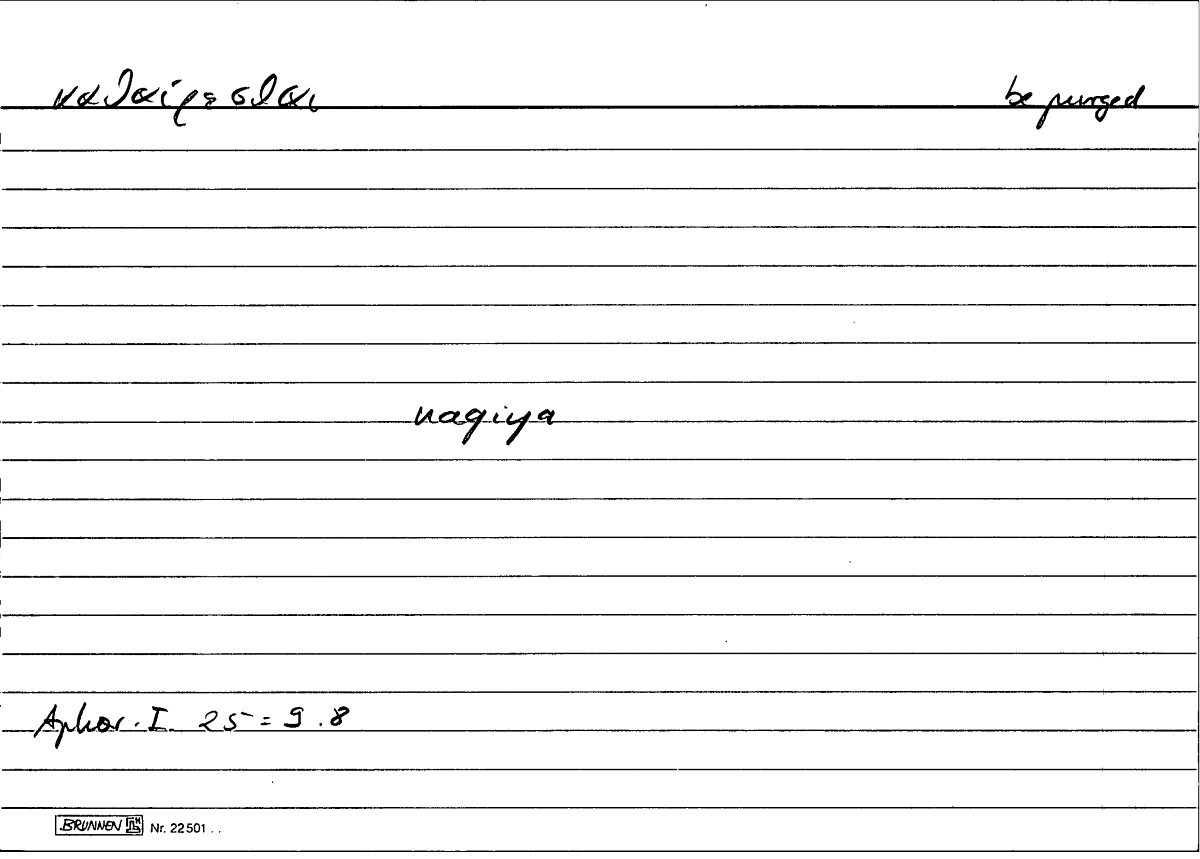 καθαίρεσθαι be purged
naqiya
Aphor. I. 25 = 9.8
BRUNNEN Nr. 22501 ..